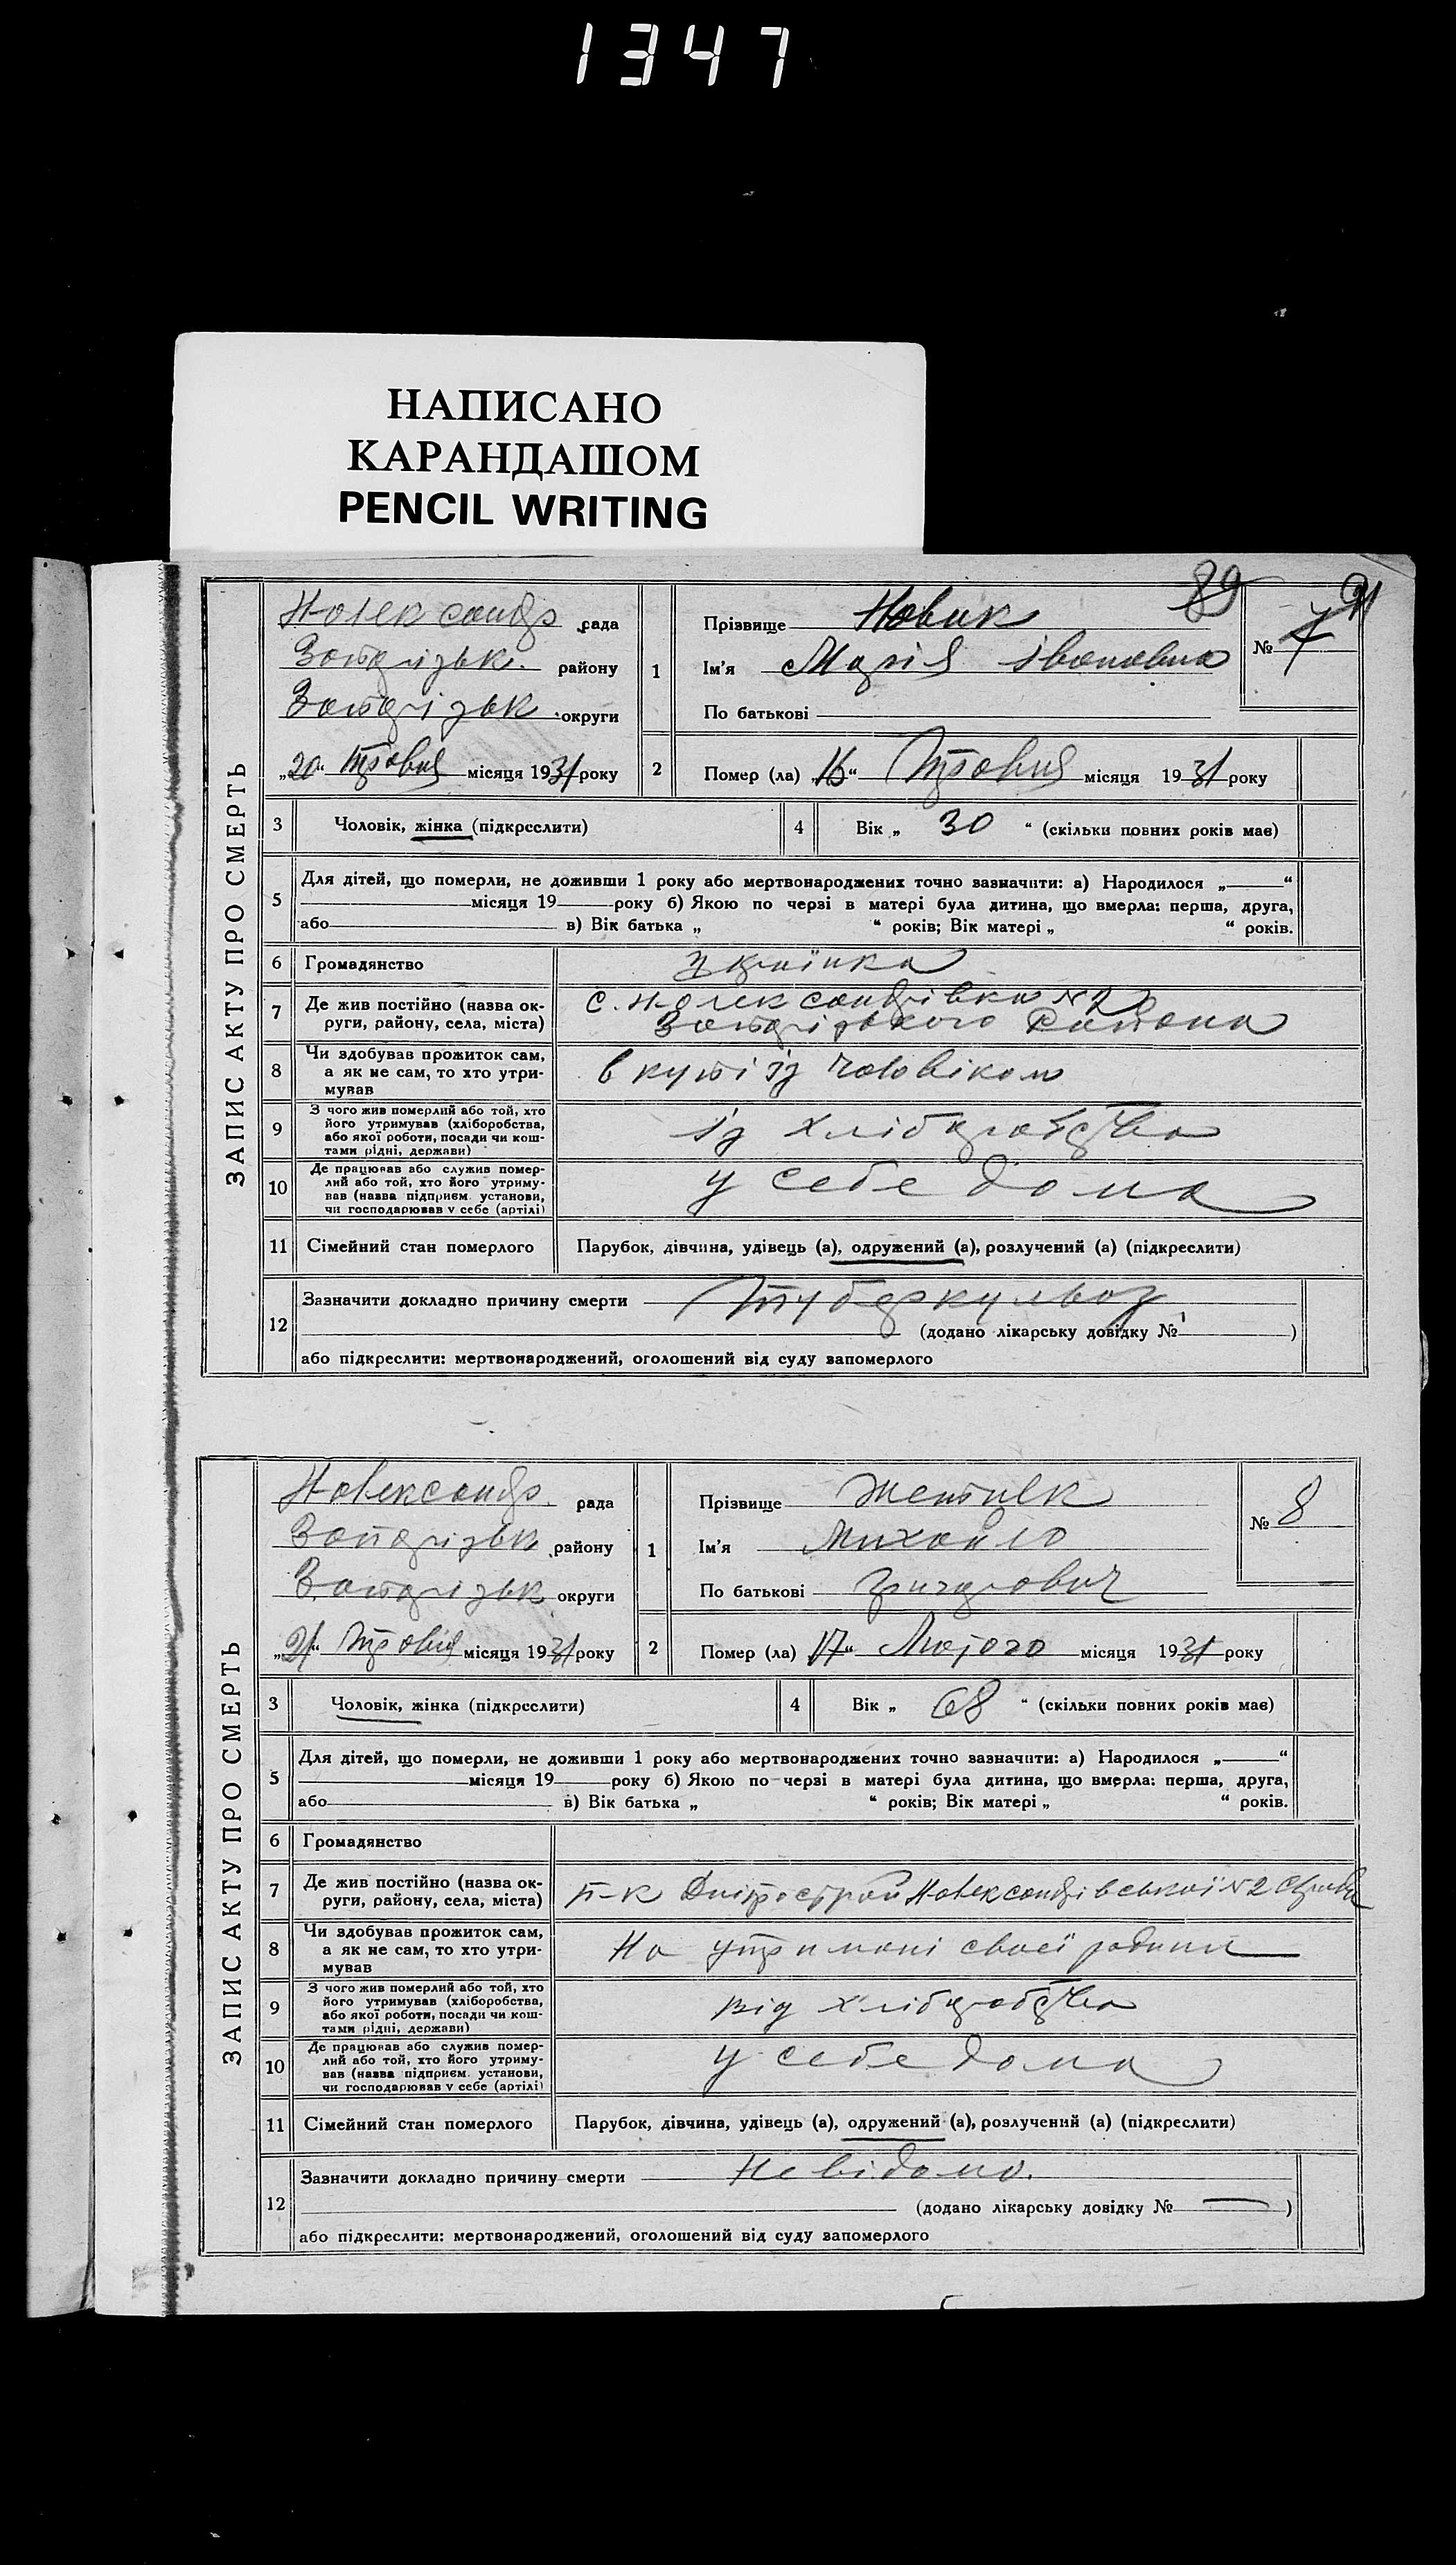 1347
НАПИСАНО
КАРАНДАШОМ
PENCIL WRITING
89
91
ЗАПИС АКТУ ПРО СМЕРТЬ
Н-Олександр рада
Запорізьк. району
Запорізьк округи
„20“ Травня місяця 1931 року
1
Прізвище Новик
Ім'я Марія Івановна
По батькові
№ 7
2
Помер (ла) „16“ Травня місяця 1931 року
3 Чоловік, жінка (підкреслити)
4 Вік „ 30 “ (скільки повних років має)
5 Для дітей, що померли, не доживши 1 року або мертвонароджених точно зазначити: а) Народилося „ “
місяця 19 року б) Якою по черзі в матері була дитина, що вмерла: перша, друга,
або в) Вік батька „ “ років; Вік матері „ “ років.
6 Громадянство Українка
7 Де жив постійно (назва округи, району, села, міста) с. Н-Олександрівки №2
Запорізького Района
8 Чи здобував прожиток сам, а як не сам, то хто утримував
в купі із Чоловіком
9 З чого жив померлий або той, хто його утримував (хліборобства, або якої роботи, посади чи коштами рідні, держави)
із хліборобства
10 Де працював або служив померлий або той, хто його утримував (назва підприєм. установи, чи господарював у себе (артілі)
у себе дома
11 Сімейний стан померлого Парубок, дівчина, удівець (а), одружений (а), розлучений (а) (підкреслити)
12 Зазначити докладно причину смерти Туберкульоз
(додано лікарську довідку № )
або підкреслити: мертвонароджений, оголошений від суду запомерлого
ЗАПИС АКТУ ПРО СМЕРТЬ
Н-Олександр. рада
Запорізьк району
Запорізьк округи
„21“ Травня місяця 1931 року
1
Прізвище
Ім'я Михайло
По батькові Григорович
№ 8
2
Помер (ла) „17“ Лютого місяця 1931 року
3 Чоловік, жінка (підкреслити)
4 Вік „ 68 “ (скільки повних років має)
5 Для дітей, що померли, не доживши 1 року або мертвонароджених точно зазначити: а) Народилося „ “
місяця 19 року б) Якою по черзі в матері була дитина, що вмерла: перша, друга,
або в) Вік батька „ “ років; Вік матері „ “ років.
6 Громадянство
7 Де жив постійно (назва округи, району, села, міста) п-к Дніпрострой Н-Олександрівської №2
8 Чи здобував прожиток сам, а як не сам, то хто утримував
На утримані своєї родини
9 З чого жив померлий або той, хто його утримував (хліборобства, або якої роботи, посади чи коштами рідні, держави)
від хліборобства
10 Де працював або служив померлий або той, хто його утримував (назва підприєм. установи, чи господарював у себе (артілі)
у себе дома
11 Сімейний стан померлого Парубок, дівчина, удівець (а), одружений (а), розлучений (а) (підкреслити)
12 Зазначити докладно причину смерти Невідомо.
(додано лікарську довідку № — )
або підкреслити: мертвонароджений, оголошений від суду запомерлого